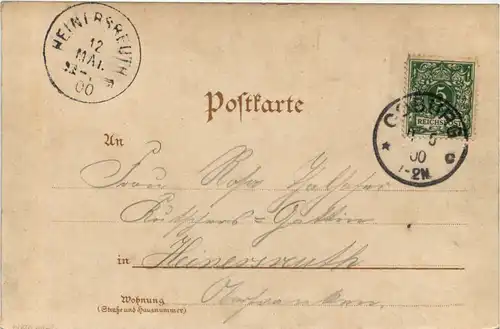 HEINERSREUTH
12
MAI.
00
5
REICHSPOST
COBURG
5
00
1-2N
C
Postkarte
An
Frau Rosa
Kutschers-Gattin
in Heinersreuth
Wohnung
(Straße und Hausnummer)
Oberfranken.